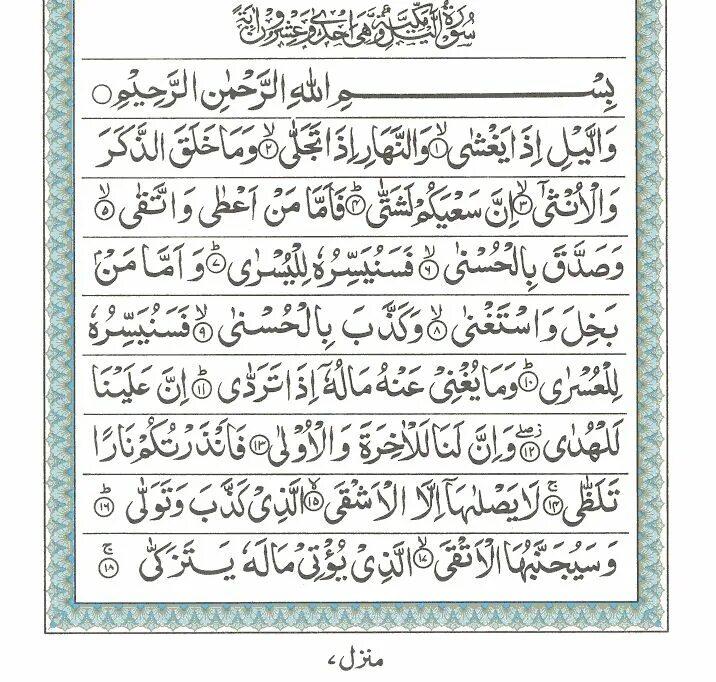 سُوْرَةُ الَّيْلِ مَكِّيَّةٌ وَّهِيَ اِحْدٰى وَّعِشْرُوْنَ اٰيَةً
بِسْمِ اللّٰهِ الرَّحْمٰنِ الرَّحِيْمِ ۝
وَالَّيْلِ اِذَا يَغْشٰى ۙ﴿۱﴾ وَالنَّهَارِ اِذَا تَجَلّٰى ۙ﴿۲﴾ وَمَا خَلَقَ الذَّكَرَ
وَالْاُنْثٰىۤ ۙ﴿۳﴾ اِنَّ سَعْيَكُمْ لَشَتّٰى ؕ﴿۴﴾ فَاَمَّا مَنْ اَعْطٰى وَاتَّقٰى ۙ﴿۵﴾
وَصَدَّقَ بِالْحُسْنٰى ۙ﴿۶﴾ فَسَنُيَسِّرُهٗ لِلْيُسْرٰى ؕ﴿۷﴾ وَاَمَّا مَنْۢ
بَخِلَ وَاسْتَغْنٰى ۙ﴿۸﴾ وَكَذَّبَ بِالْحُسْنٰى ۙ﴿۹﴾ فَسَنُيَسِّرُهٗ
لِلْعُسْرٰى ؕ﴿۱۰﴾ وَمَا يُغْنِىْ عَنْهُ مَالُهٗۤ اِذَا تَرَدّٰى ؕ﴿۱۱﴾ اِنَّ عَلَيْنَا
لَلْهُدٰى ۖ﴿۱۲﴾ وَاِنَّ لَنَا لَلْاٰخِرَةَ وَالْاُوْلٰى ﴿۱۳﴾ فَاَنْذَرْتُكُمْ نَارًا
تَلَظّٰى ۚ﴿۱۴﴾ لَا يَصْلٰىهَاۤ اِلَّا الْاَشْقَى ۙ﴿۱۵﴾ الَّذِىْ كَذَّبَ وَتَوَلّٰى ؕ﴿۱۶﴾
وَسَيُجَنَّبُهَا الْاَتْقَى ۙ﴿۱۷﴾ الَّذِىْ يُؤْتِىْ مَالَهٗ يَتَزَكّٰى ۚ﴿۱۸﴾
منزل ۷